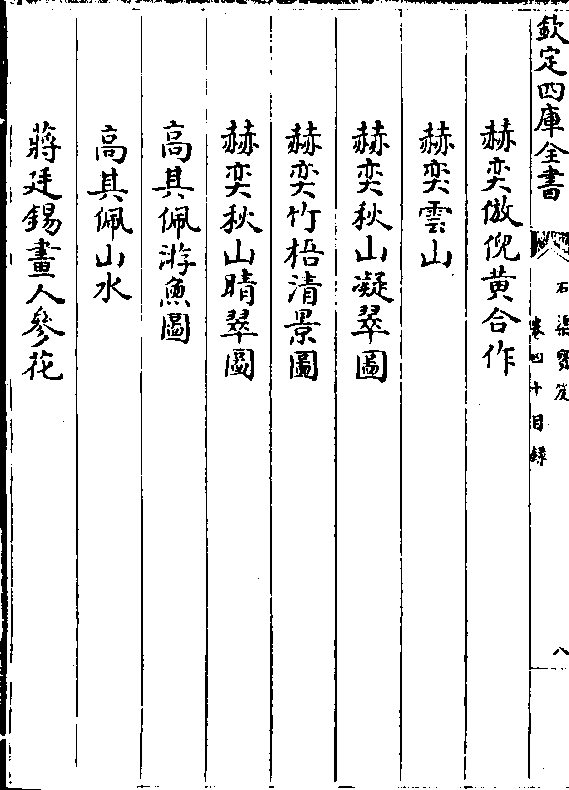 欽定四庫全書
石渠寶笈
卷四十目錄
八
赫奕倣倪黄合作
赫奕雲山
赫奕秋山凝翠圖
赫奕竹梧清景圖
赫奕秋山晴翠圖
高其佩游魚圖
高其佩山水
蔣廷錫畫人參花